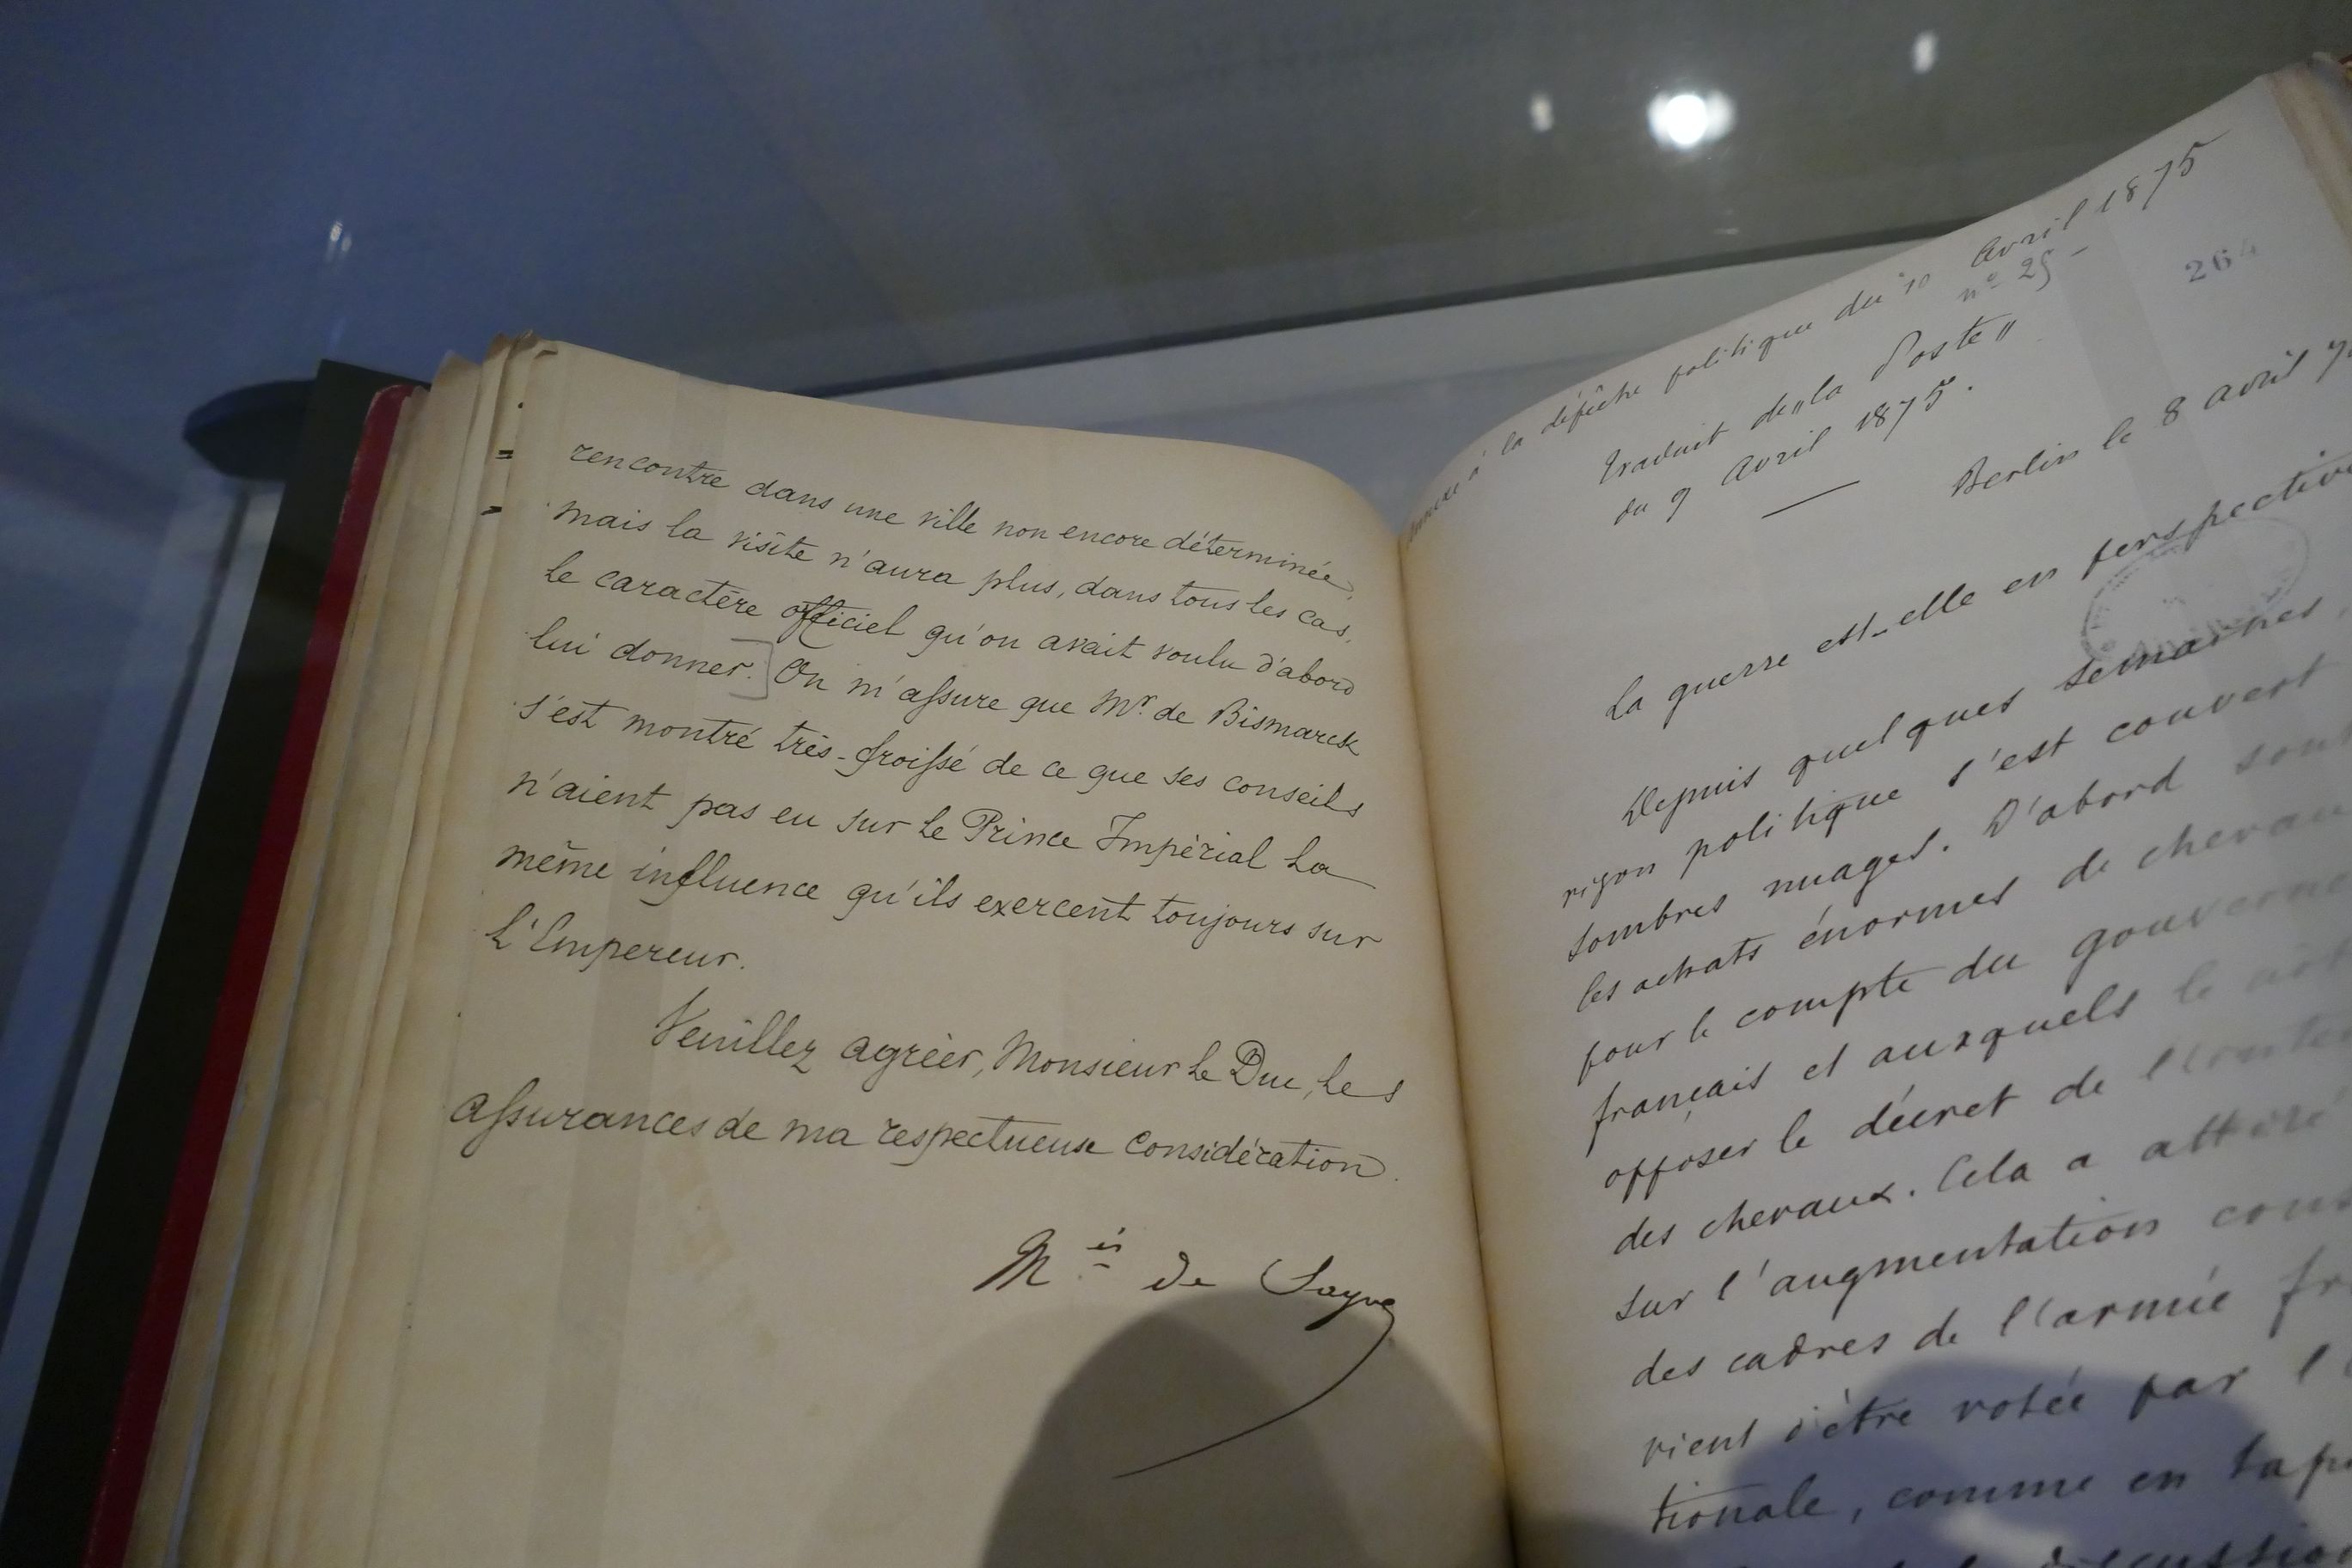 rencontre dans une ville non encore déterminée,
mais la visite n'aura plus, dans tous les cas,
le caractère officiel qu'on avait voulu d'abord
lui donner.] On m'assure que Mr. de Bismarck
s'est montré très-froissé de ce que ses conseils
n'aient pas eu sur le Prince Impérial la
même influence qu'ils exercent toujours sur
l'Empereur.
Veuillez agréer, Monsieur le Duc, les
assurances de ma respectueuse considération.
Mis de Sayve
Annexe à la dépêche politique du 10 Avril 1875
n° 25 -
264
traduit de "la Poste"
du 9 Avril 1875.
Berlin le 8 avril
La guerre est-elle en perspective
Depuis quelques semaines,
rizon politique s'est couvert
sombres nuages. D'abord sont
les achats énormes de
pour le compte du
français et auxquels le
opposer le décret de
des chevaux. Cela a attiré
sur l'augmentation
des cadres de l'armée
vient d'être votée par
tionale, comme en